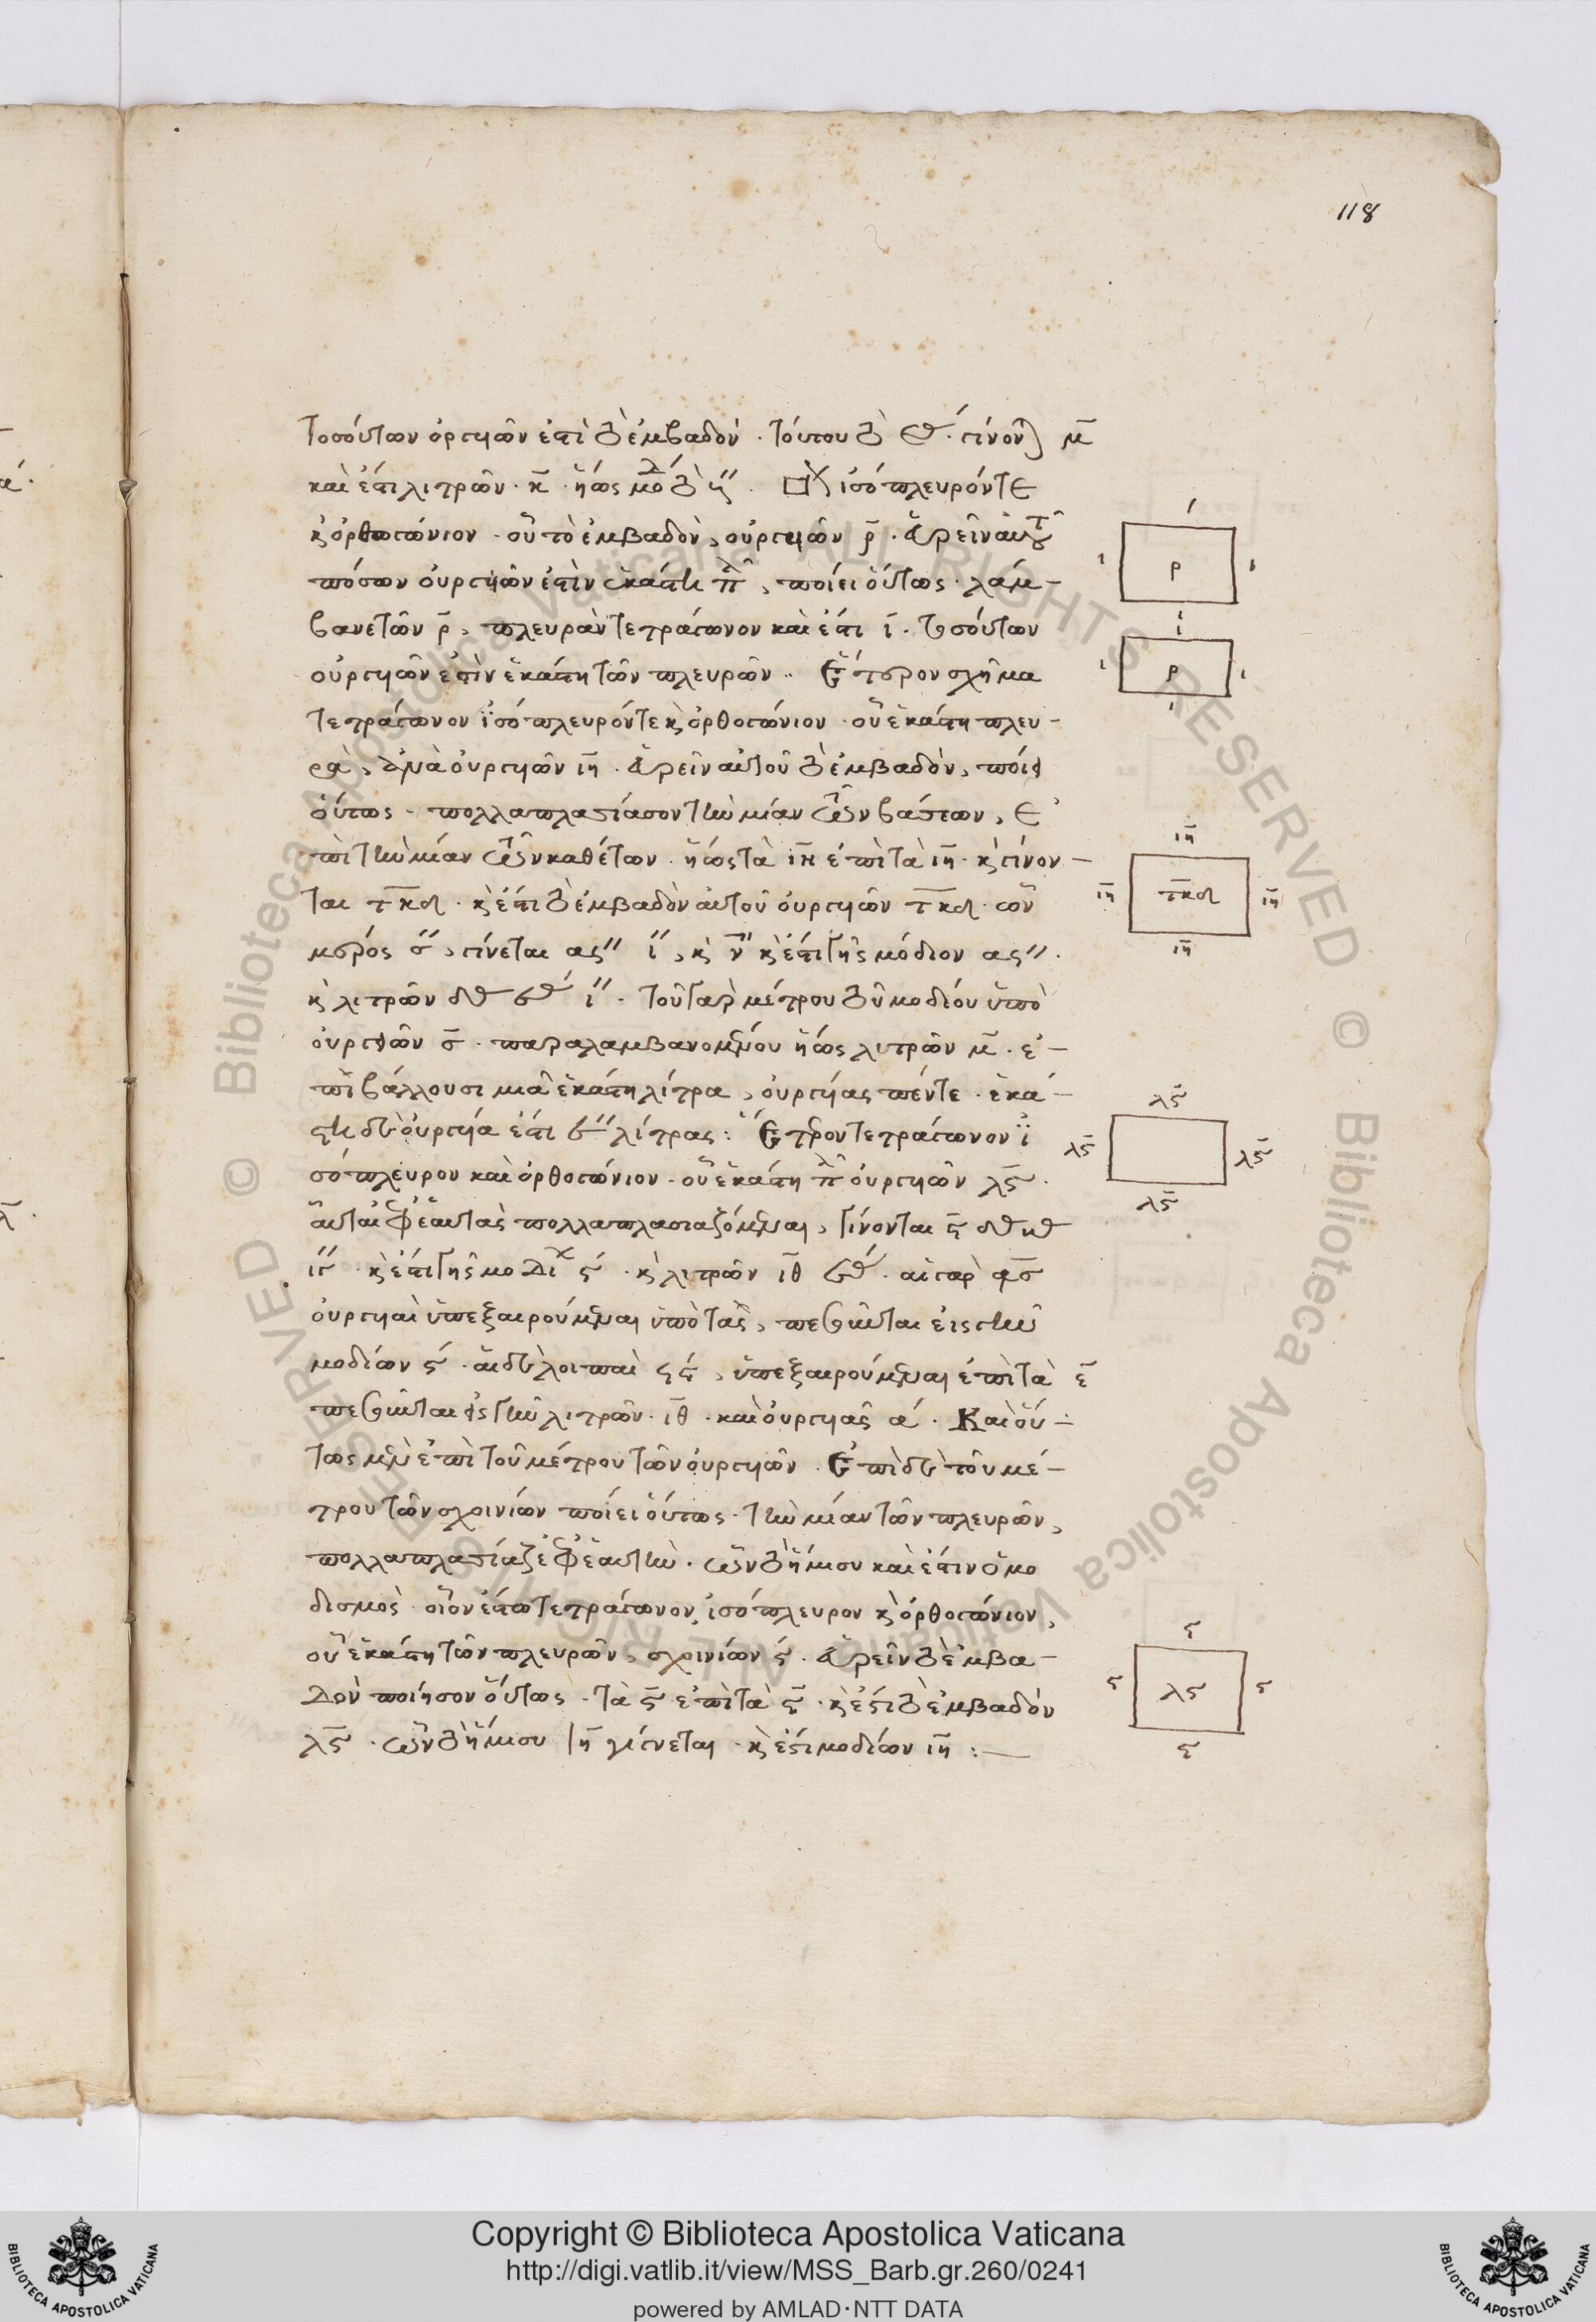 118
τοσούτων ὀργιῶν ἐστὶ τὸ ἐμβαδόν · τούτου τὸ · γίνονται μ̅
καὶ ἔστι λιτρῶν · κ̅ · ἤγουν
ἰσόπλευρόν τε
ρ
κ ὀρθογώνιον · οὗ τὸ ἐμβαδὸν, οὐργιῶν ρ̅ · εὑρεῖν
πόσων οὐργιῶν ἐστὶν ἑκάστη, ποίει οὕτως · λάμ-
βανε τῶν ρ̅, πλευρὰν τετράγωνον καὶ ἔστι ι̅ · τοσούτων
οὐργιῶν ἐστὶν ἑκάστη τῶν πλευρῶν · ἕτερον σχῆμα
ρ
τετράγωνον ἰσόπλευρόν τε κ ὀρθογώνιον · οὗ ἑκάστη πλευ-
ρὰ, ἀνὰ οὐργιῶν ιη̅ · εὑρεῖν αὐτοῦ τὸ ἐμβαδὸν, ποίει
οὕτως · πολλαπλασίασον τὴν μίαν τῶν βάσεων, ἐ
πὶ τὴν μίαν τῶν καθέτων · ἤγουν τὰ ιη̅ ἐπὶ τὰ ιη̅ · κ γίνον-
ιη̅
ιη̅ τκδ ιη̅
ιη̅
ται τκδ · κ ἔστι τὸ ἐμβαδὸν αὐτοῦ οὐργιῶν τκδ · ὧν
μέρος σ΄΄, γίνεται ας΄΄ ι΄΄, κ ν΄΄ κ ἔστι γῆς μόδιον ας΄΄ ·
κ λιτρῶν · τοῦ γὰρ μέτρου τοῦ μοδίου ὑπὸ
οὐργιῶν σ̅ · παραλαμβανομένου ἤγουν λιτρῶν μ̅ · ἐ-
πιβάλλουσι μιᾶ ἑκάστη λίτρα, οὐργίας πέντε · ἑκά-
στη δὲ οὐργία ἔστι λίτρας : ἕτερον τετράγωνον ἰ
λς̅
λς̅ λς̅
λς̅
σόπλευρον καὶ ὀρθογώνιον · οὗ ἑκάστη οὐργιῶν λς̅ ·
αὗται ἐφ ἑαυτὰς πολλαπλασιαζόμεναι, γίνονται
κ ἔστι γῆς μοδίων ς΄ · κ λιτρῶν ιθ · αἱ γὰρ
οὐργιαὶ ὑπεξαιρούμεναι ὑπὸ τὰς, εἰς τὴν
μοδίων ς΄ · αἱ δὲ λοιπαὶ ϟς΄, ὑπεξαιρούμεναι ἐπὶ τὰ ε̅
εἰς τὴν λιτρῶν · ιθ · καὶ οὐργιᾶς α΄ · Καὶ οὕ-
τως μὲν ἐπὶ τοῦ μέτρου τῶν οὐργιῶν · Ἐπὶ δὲ τοῦ μέ-
τρου τῶν σχοινίων ποίει οὕτως · τὴν μίαν τῶν πλευρῶν,
πολλαπλασίαζε ἐφ ἑαυτὴν · ὧν τὸ ἥμισυ καὶ ἔστιν ὁ μο
δισμός · οἷον ἔστω τετράγωνον ἰσόπλευρον κ ὀρθογώνιον,
οὗ ἑκάστη τῶν πλευρῶν, σχοινίων ς΄ · εὑρεῖν τὸ ἐμβα-
δὸν ποίησον οὕτως · τὰ ς̅ ἐπὶ τὰ ς̅ · κ ἔστι τὸ ἐμβαδὸν
λς̅ · ὧν τὸ ἥμισυ ιη̅ γίνεται · κ ἔστι μοδίων ιη̅ :—
ς
ς λς ς
ς
Copyright © Biblioteca Apostolica Vaticana
http://digi.vatlib.it/view/MSS_Barb.gr.260/0241
powered by AMLAD·NTT DATA
BIBLIOTECA APOSTOLICA VATICANA
BIBLIOTECA APOSTOLICA VATICANA